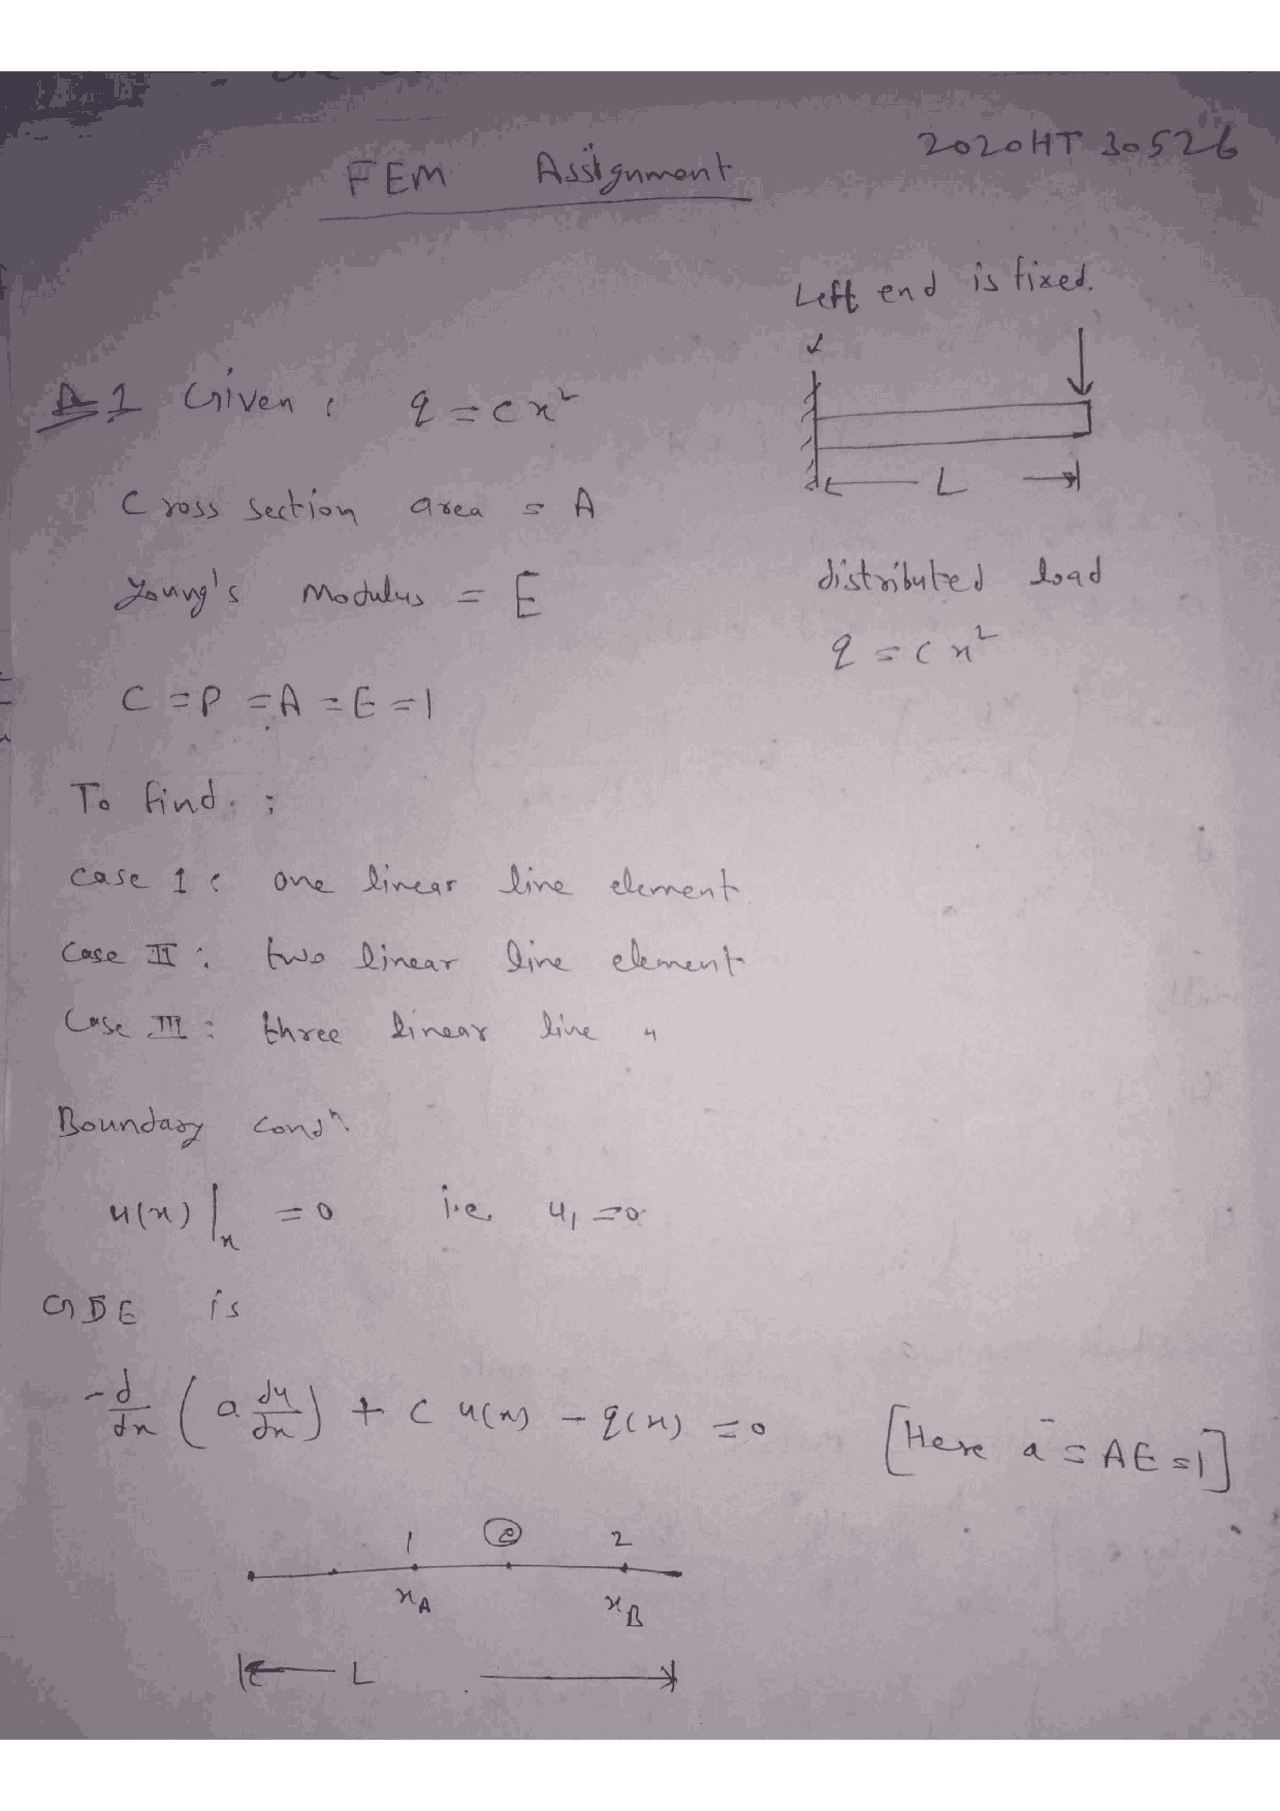 2020HT 30526
FEM Assignment
Left end is fixed.
1 Given : q = cx²
L
Cross section area = A
Young's Modulus = E
distributed load
q = cx²
C = P = A = E = 1
To find :
case 1 : one linear line element
Case II : two linear line element
Case III : three linear line "
Boundary condⁿ.
u(x) |ₓ = 0 i.e. u₁ = 0
GDE is
-d/dx ( a du/dx ) + c u(x) - q(x) = 0 [Here a = AE = 1]
1 e 2
x_A x_B
L